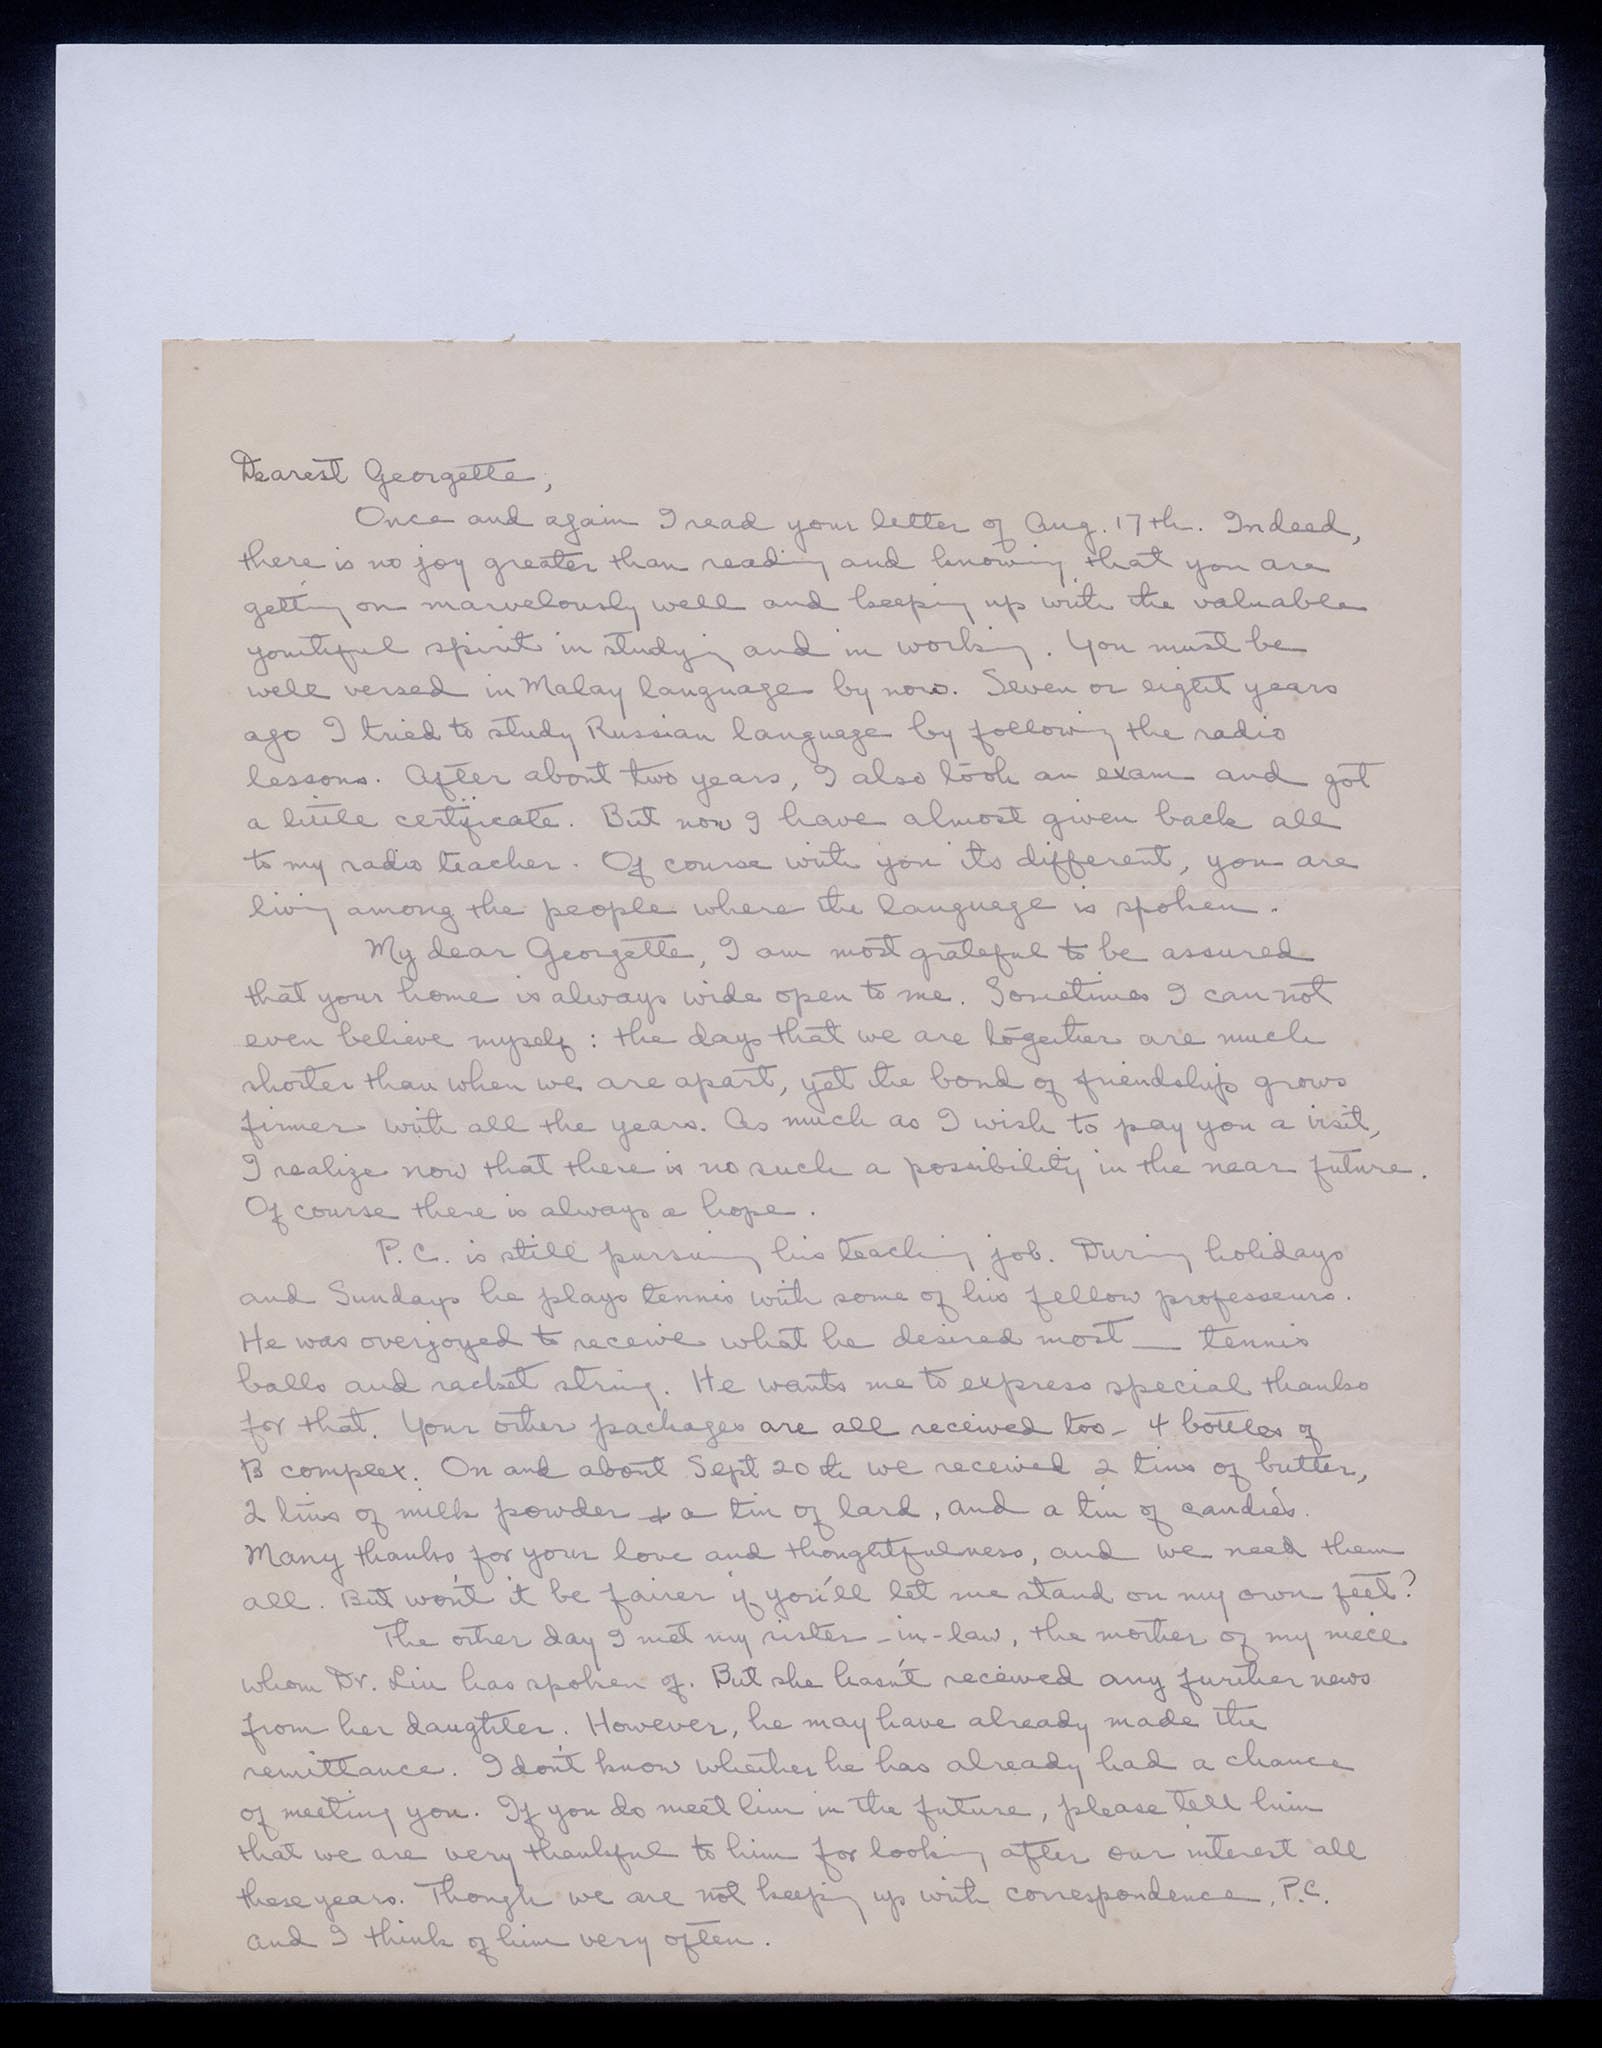 Dearest Georgette,
Once and again I read your letter of Aug. 17th. Indeed,
there is no joy greater than reading and knowing that you are
getting on marvelously well and keeping up with the valuable
youthful spirit in studying and in working. You must be
well versed in Malay language by now. Seven or eight years
ago I tried to study Russian language by following the radio
lessons. After about two years, I also took an exam and got
a little certificate. But now I have almost given back all
to my radio teacher. Of course with you its different, you are
living among the people where the language is spoken.
My dear Georgette, I am most grateful to be assured
that your home is always wide open to me. Sometimes I can not
even believe myself: the days that we are together are much
shorter than when we are apart, yet the bond of friendship grows
firmer with all the years. As much as I wish to pay you a visit,
I realize now that there is no such a possibility in the near future.
Of course there is always a hope.
P.C. is still pursuing his teaching job. During holidays
and Sundays he plays tennis with some of his fellow professeurs.
He was overjoyed to receive what he desired most — tennis
balls and racket string. He wants me to express special thanks
for that. Your other packages are all received too - 4 bottles of
B complex. On and about Sept 20th we received 2 tins of butter,
2 tins of milk powder & a tin of lard, and a tin of candies.
Many thanks for your love and thoughtfulness, and we need them
all. But won't it be fairer if you'll let me stand on my own feet?
The other day I met my sister-in-law, the mother of my niece
whom Dr. Liu has spoken of. But she hasn't received any further news
from her daughter. However, he may have already made the
remittance. I don't know whether he has already had a chance
of meeting you. If you do meet him in the future, please tell him
that we are very thankful to him for looking after our interest all
these years. Though we are not keeping up with correspondence, P.C.
and I think of him very often.